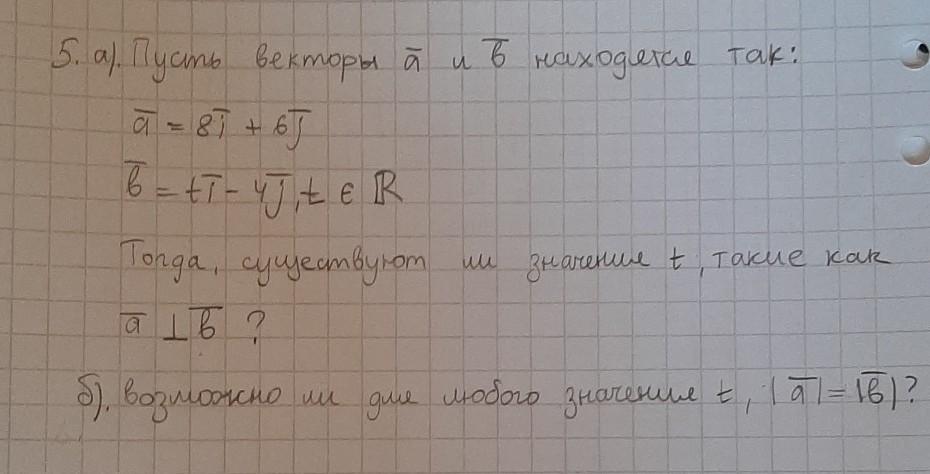 5. а). Пусть векторы a̅ и b̅ находятся так:
a̅ = 8i̅ + 6j̅
b̅ = ti̅ - 4j̅, t ∈ ℝ
Тогда, существуют ли значение t, такие как
a̅ ⊥ b̅ ?
б). возможно ли для любого значение t, |a̅| = |b̅|?